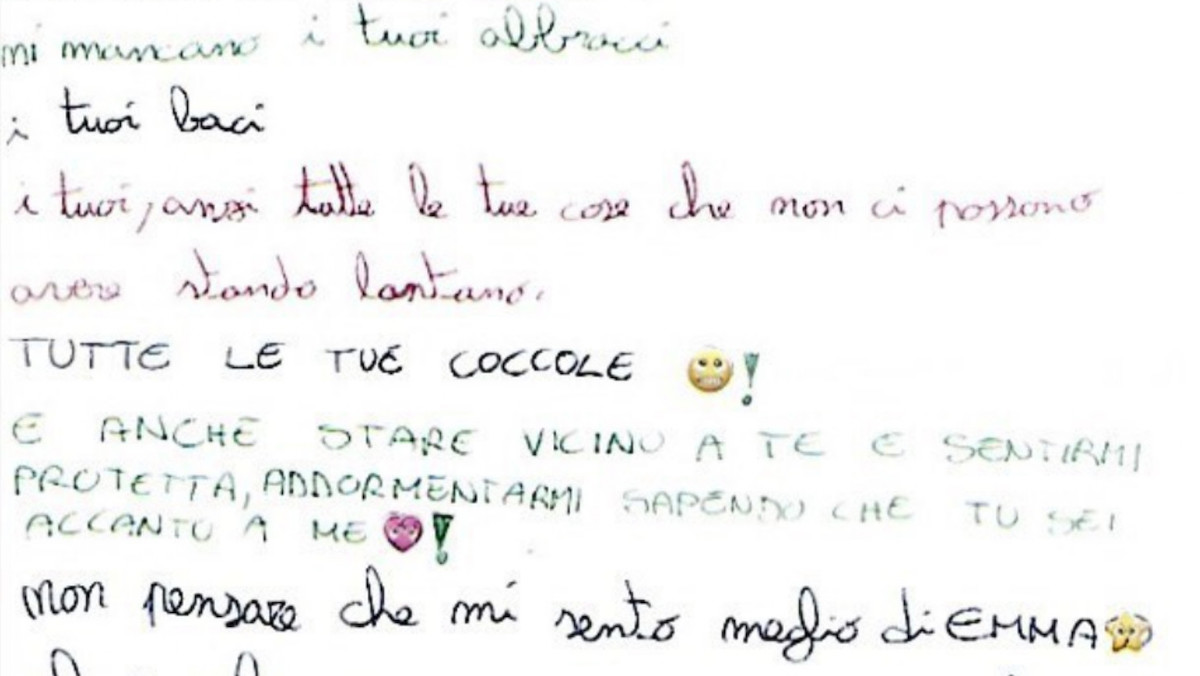 mi mancano i tuoi abbracci
i tuoi baci
i tuoi, anzi tutte le tue cose che non ci possono
avere stando lontano.
TUTTE LE TUE COCCOLE !
E ANCHE STARE VICINO A TE E SENTIRMI
PROTETTA, ADDORMENTARMI SAPENDO CHE TU SEI
ACCANTO A ME !
non pensare che mi sento meglio di EMMA